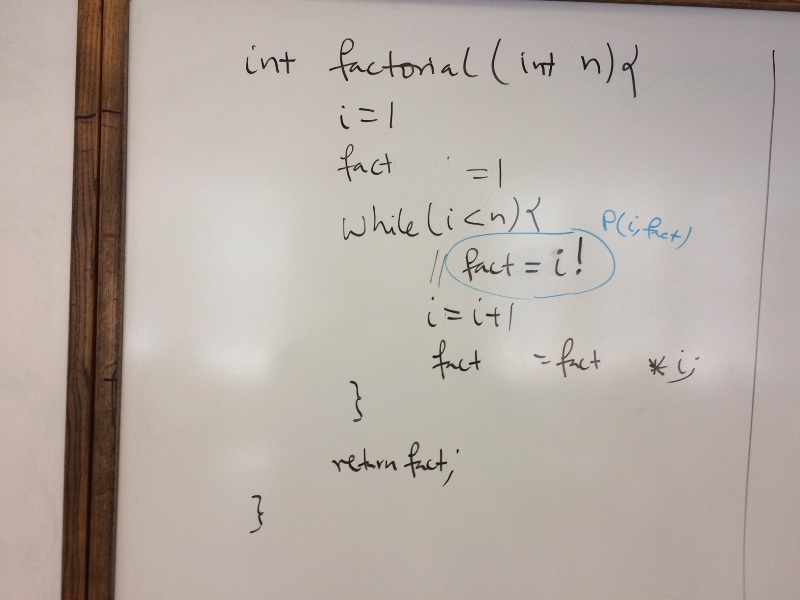 int factorial (int n){
i=1
fact =1
while(i<n){
P(i,fact)
// fact = i!
i=i+1
fact =fact *i;
}
return fact;
}